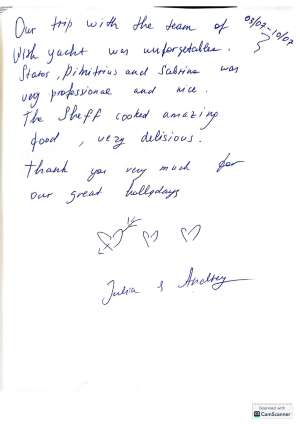 Our trip with the team of 05/07-10/07
With yacht was unforgetable.
Statos, Dimitrius and Sabrina was
very professional and nice.
The Sheff cooked amazing
food, very delisious.
Thank you very much for
our great hollydays
Julia & Andrey
Scanned with
CamScanner